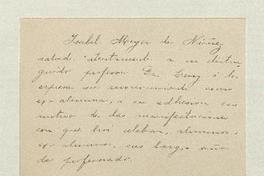 Isabel Meyer de Núñez
saluda atentamente a su distin-
guido profesor Dr. y le
expresa su reconocimiento como
ex-alumna, a su adhesion con
motivo de las manifestaciones
con que hoy celebran, alumnos y
ex-alumnos, sus largos años
de profesorado.